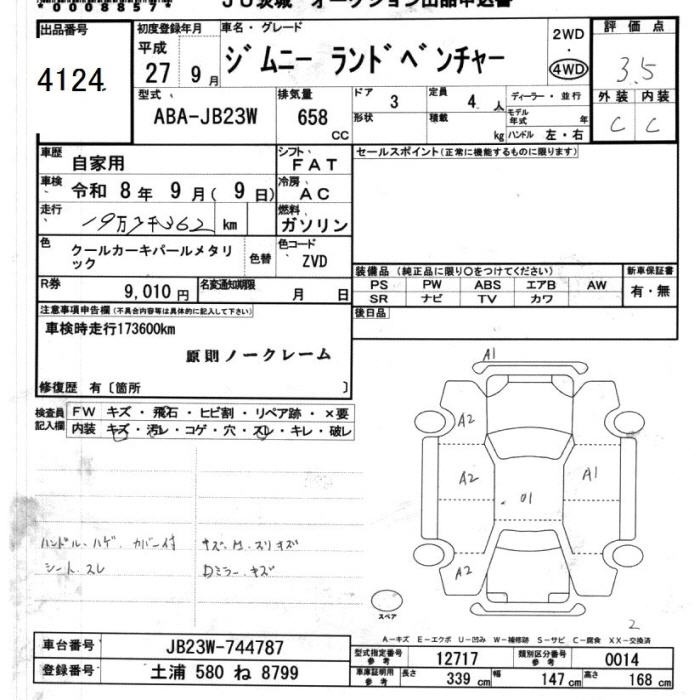 00088577
JU茨城 オークション出品申込書
出品番号
4124
初度登録年月
平成
27年9月
車名・グレード
ジムニー ランドベンチャー
2WD
・
4WD
評価点
3.5
外装 内装
C C
型式
ABA-JB23W
排気量
658
CC
ドア 3
定員 4 人
形状
積載 kg
ディーラー・並行
モデル年式 年
ハンドル 左・右
車歴 自家用
シフト FAT
車検 令和 8年 9月(9日)
冷房 AC
走行 km
燃料 ガソリン
色 クールカーキパールメタリック
色替
色コード ZVD
R券 9,010円
名変通知期限 月 日
セールスポイント(正常に機能するものに限ります)
装備品(純正品に限り○をつけてください)
PS PW ABS エアB AW
SR ナビ TV カワ
新車保証書
有・無
後日品
注意事項申告欄(不具合内容等は具体的に記入して下さい)
車検時走行173600km
原則ノークレーム
修復歴 有〔箇所 〕
検査員記入欄
FW キズ・飛石・ヒビ割・リペア跡・×要
内装 キズ・汚レ・コゲ・穴・スレ・キレ・破レ
ハンドル・ハゲ・カバー付
シート・スレ
Dミラー・キズ
A1
A2
A2
A1
01
A2
スペア
2
A-キズ E-エクボ U-凹み W-補修跡 S-サビ C-腐食 XX-交換済
車台番号 JB23W-744787
登録番号 土浦 580 ね 8799
型式指定番号 参考 12717
類別区分番号 参考 0014
車庫証明用 参考 長さ 339 cm 幅 147 cm 高さ 168 cm